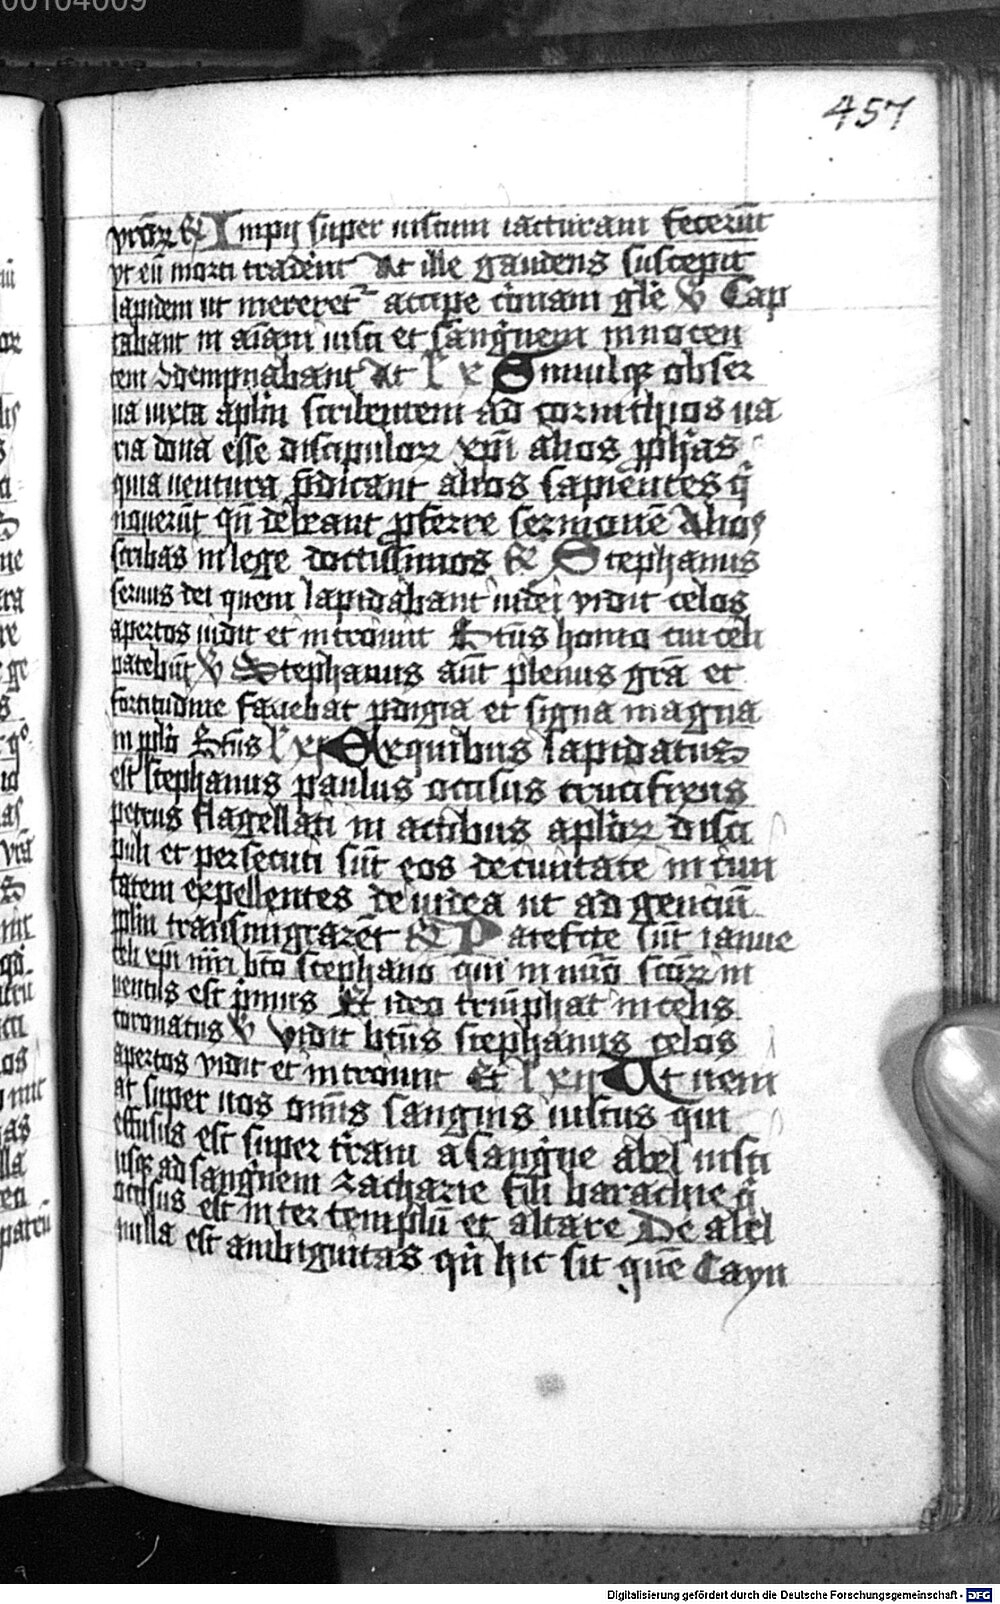 00104009
457
vr̄oꝝ R Impij super iustum iacturam fecerūt
vt eū morti tradēnt At ille gaudens suscepit
lapidem ut mereret᷑ accipe cōnam glē V Cap
tabant in aīam iusti et sangͥnem innocen
tem 9dempnabant At l x Simulqꝫ obser
ua iuxta aplm̄ scribentem ad corinthios ua
ria dona esse discipuloꝝ xpī alios ꝓphās
quia uentura p̄dicant alios sapientes qͥ
nouerūt qn̄ debeant ꝓferre sermonē Alios
scribas in lege doctissimos R Stephanus
seruus dei quem lapidabant iudei vidit celos
apertos uidit et introiuit Btūs homo cui celi
patebūt V Stephanus aūt plenus grā et
fortitudine faciebat ꝓdigia et signa magna
in pplō Btūs l xj Ex quibus lapidatus
est stephanus paulus occisus crucifixus
petrus flagellati in actibus aplōꝝ disci
puli et persecuti sūt eos de ciuitate in ciui
tatem expellentes de iudea ut ad genciū
pplm̄ transmigrarēt R Patefcte sūt ianue
celi xpī mr̄i btō stephano qui in nūo mr̄m in
uentus est pͥmus Et ideo triūphat in celis
coronatus V Vidit btūs stephanus celos
apertos vidit et introiuit Et l xij Ut ueni
at super uos om̄is sanguis iustus qui
effusus est super tr̄am a sangͥne abel iusti
usqꝫ ad sangͥnem zacharie fili barachie qͥ
occisus est inter templū et altare De abel
nulla est ambiguitas qͥn hic sit quē Cayn
Digitalisierung gefördert durch die Deutsche Forschungsgemeinschaft - DFG